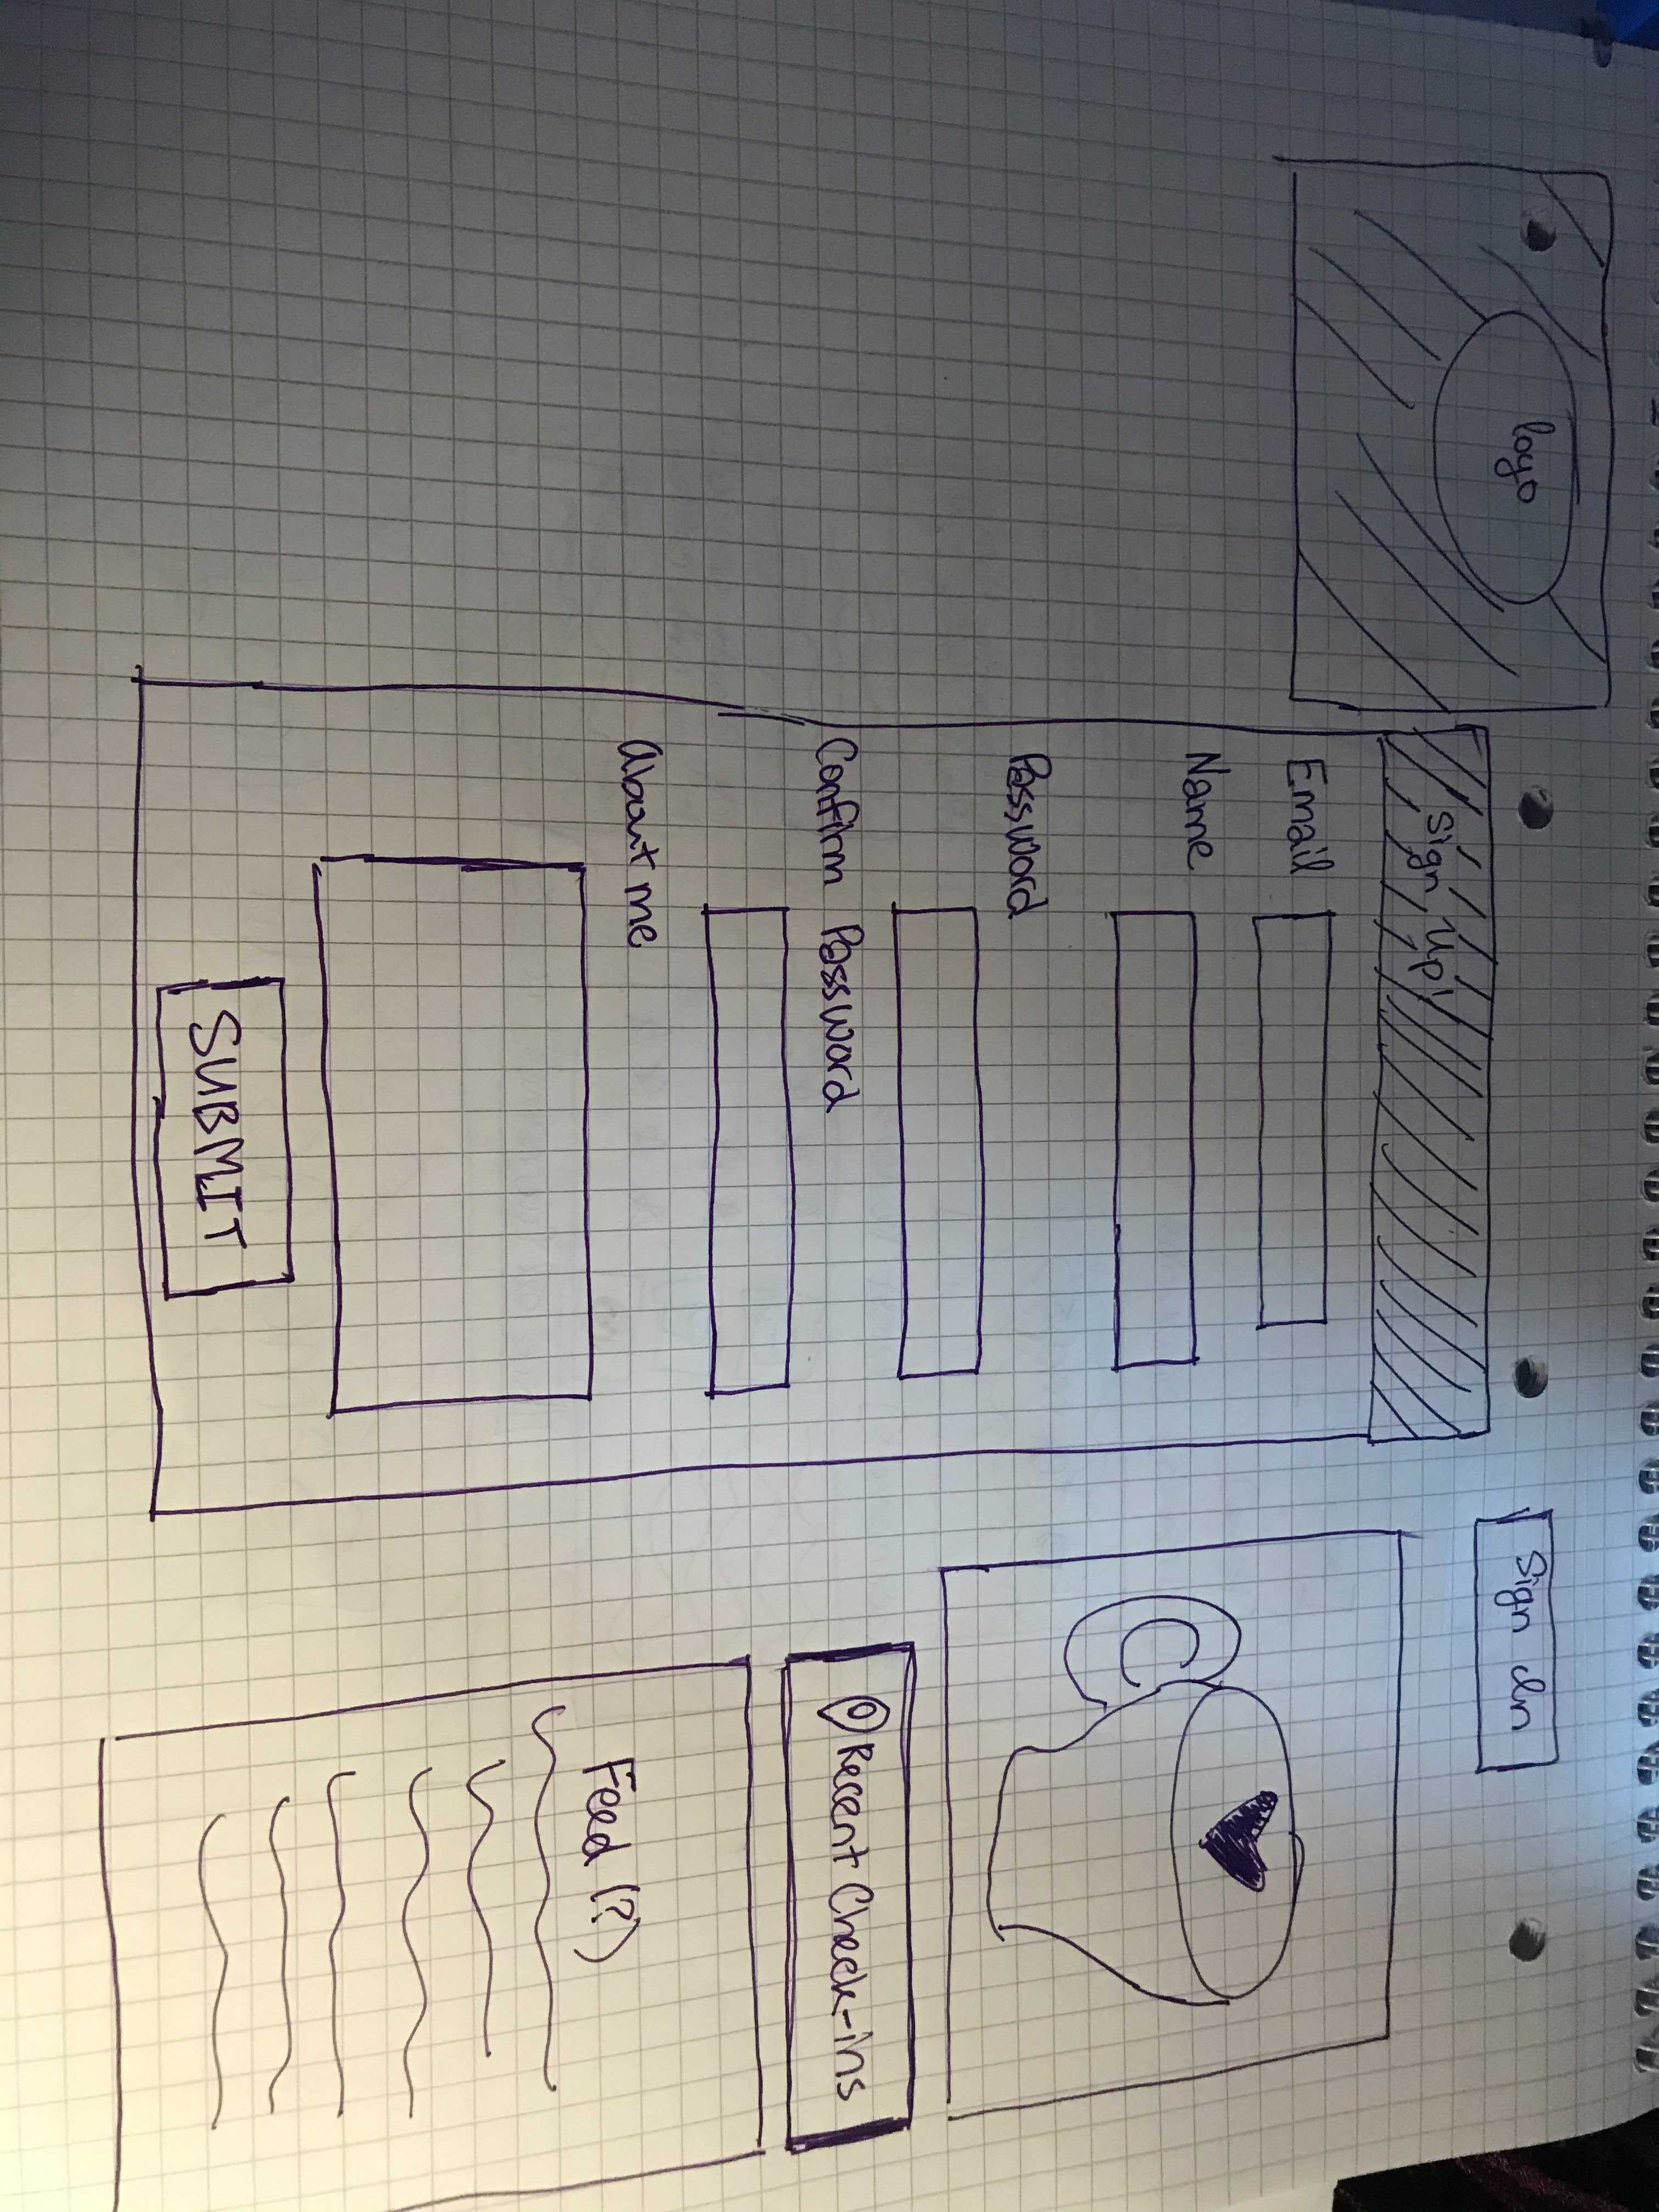 logo
Sign In
Sign Up!
Email
Name
Password
Confirm Password
About me
SUBMIT
Recent Check-ins
Feed (?)